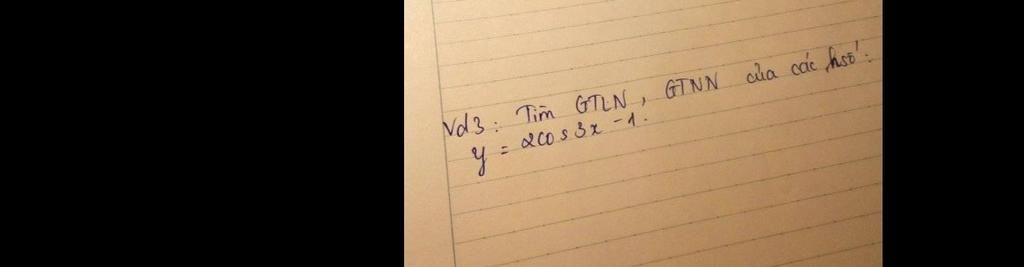 Vd3: Tìm GTLN, GTNN của các hsố:
y = 2cos3x - 1.